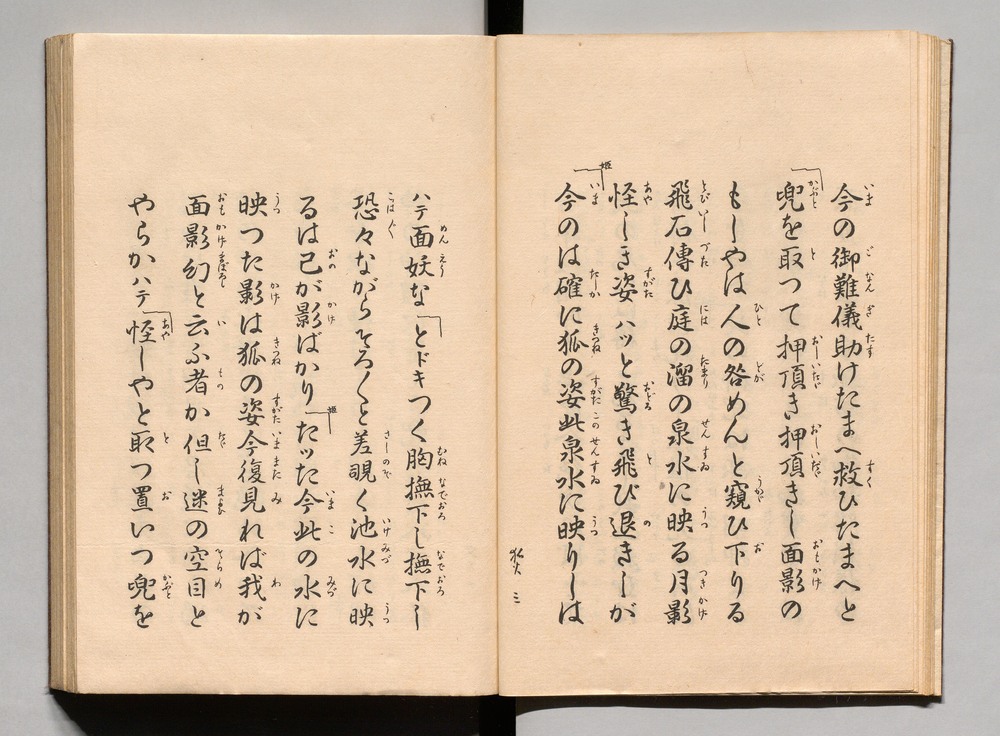 今の御難儀助けたまへ救ひたまへと
兜を取つて押頂き押頂きし面影の
もしやは人の咎めんと窺ひ下りる
飛石傳ひ庭の溜の泉水に映る月影
怪しき姿ハッと驚き飛び退きしが
姫
今のは確に狐の姿此泉水に映りしは
三
ハテ面妖なとドキつく胸撫下し撫下し
恐々ながらそろ〱と差覗く池水に映
るは己が影ばかり
姫
たッた今此の水に
映つた影は狐の姿今復見れば我が
面影幻と云ふ者か但し迷の空目と
やらかハテ怪しやと取つ置いつ兜を